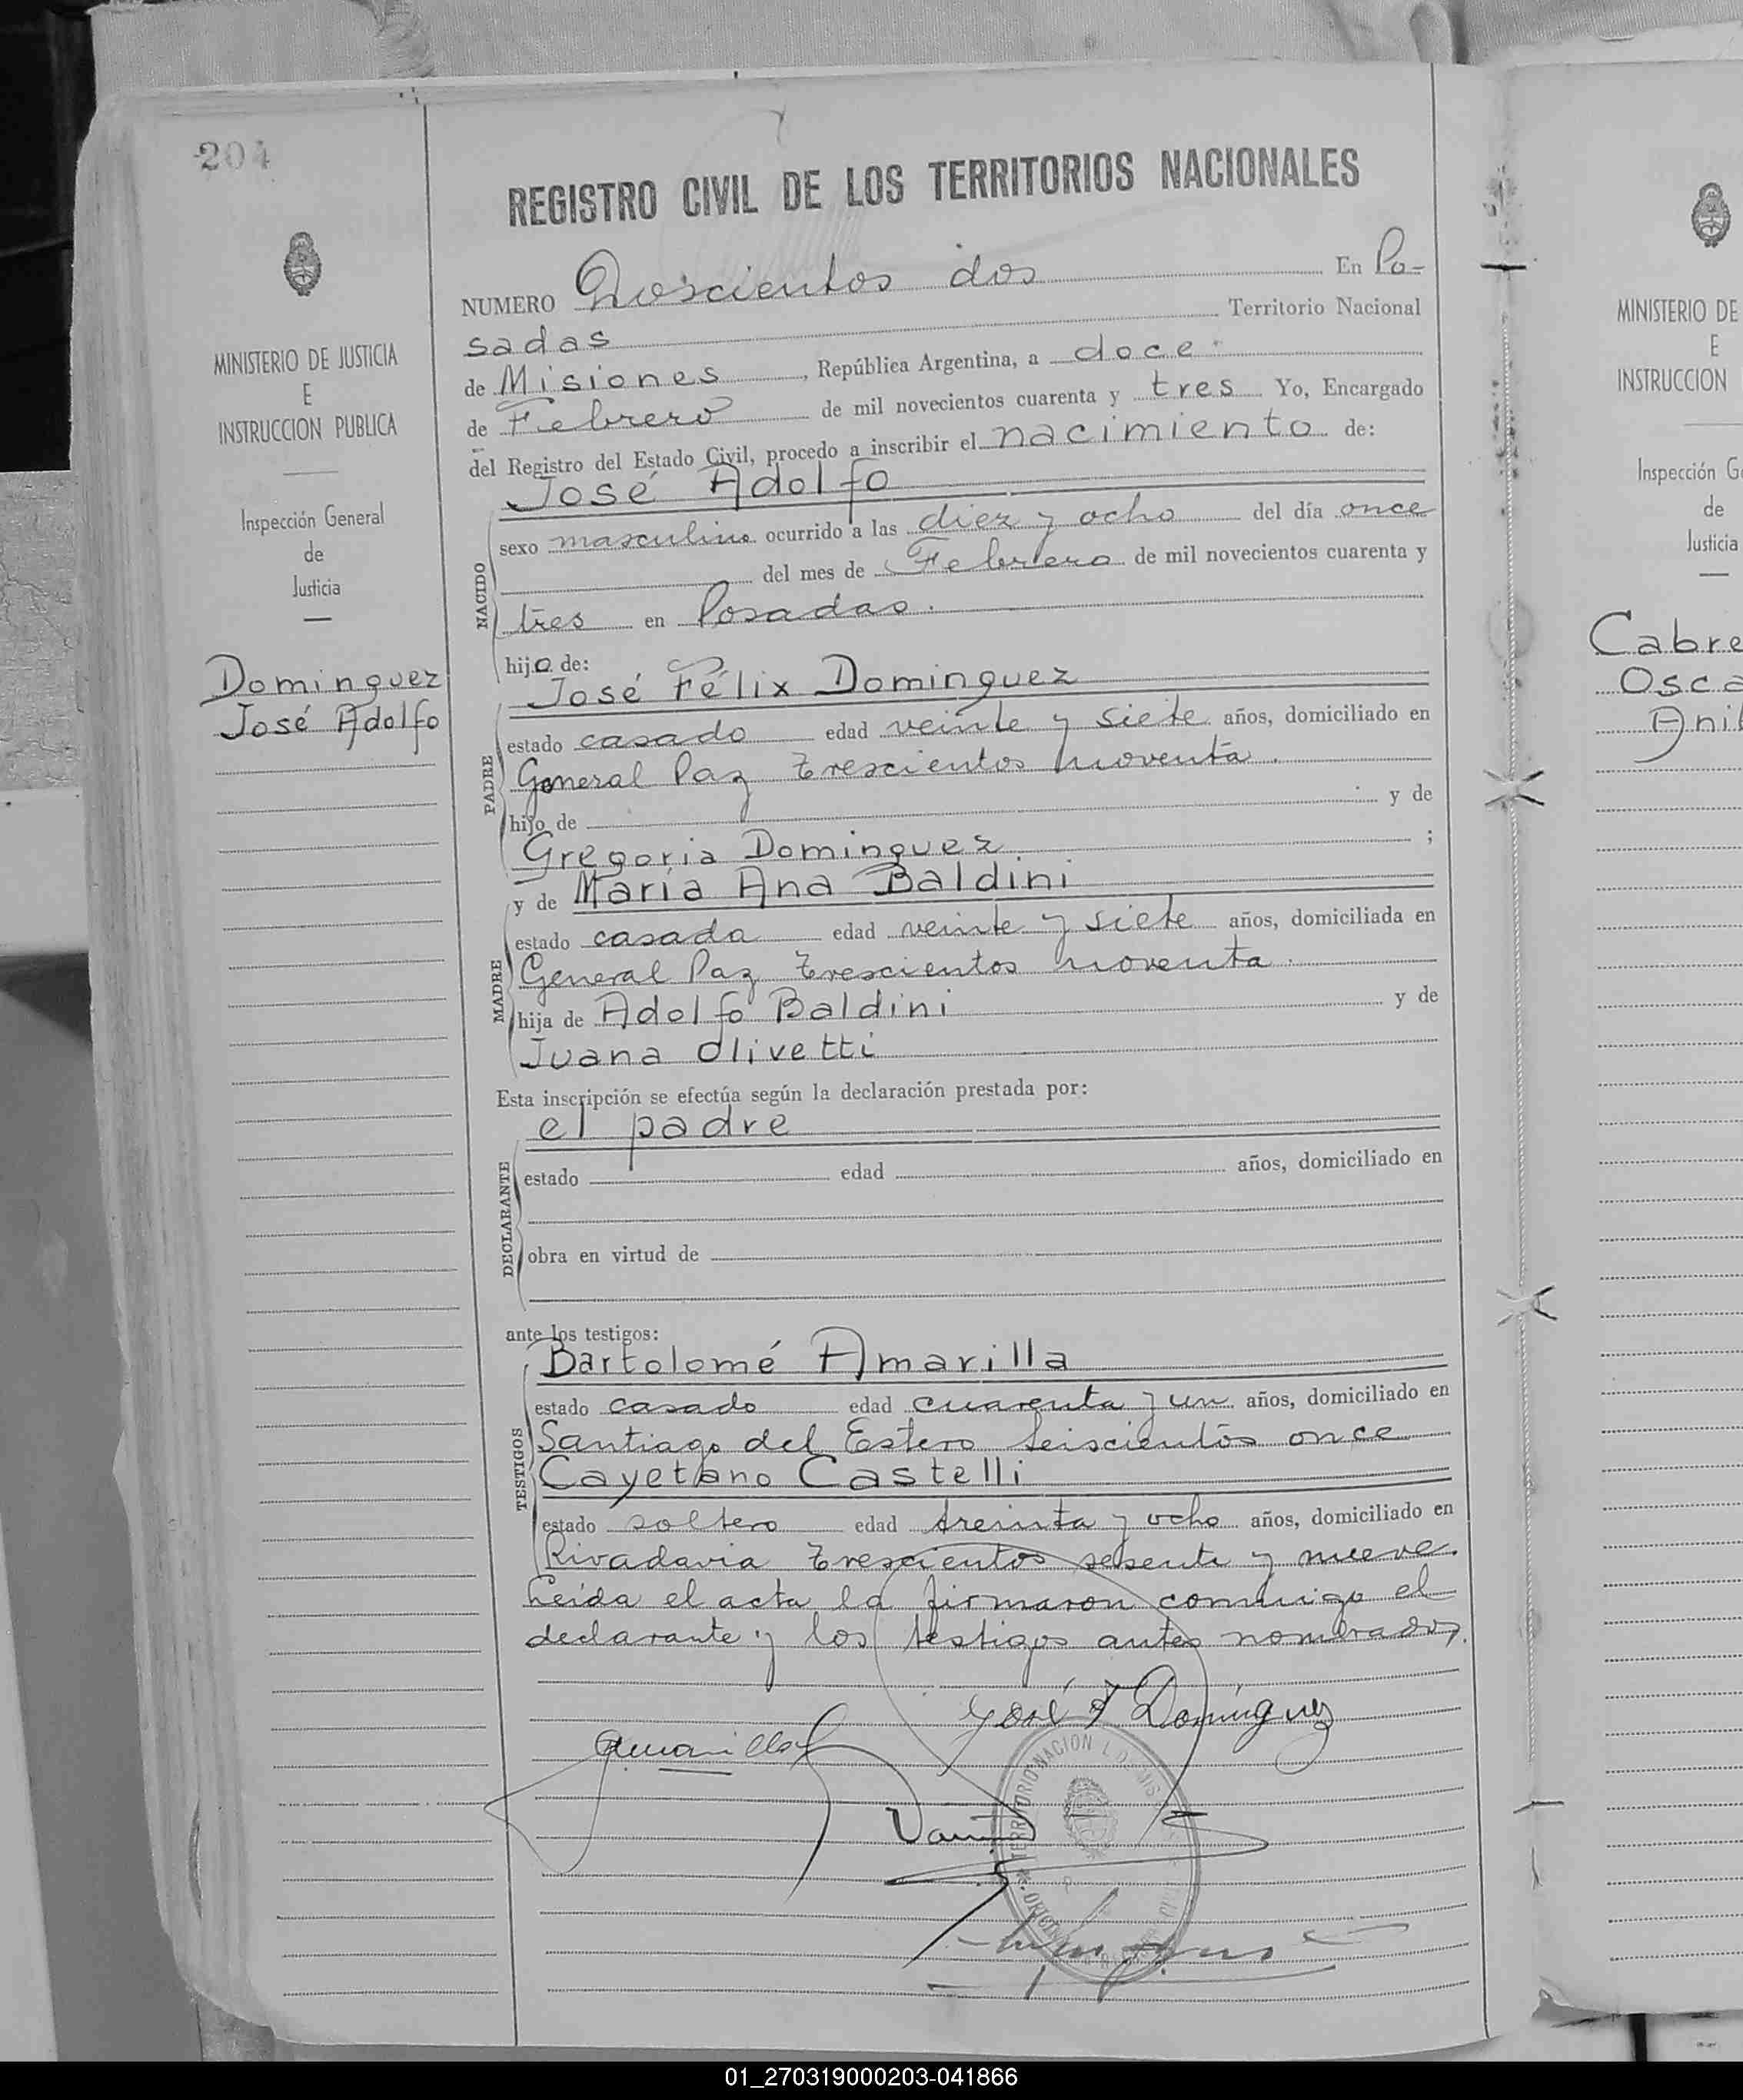 204
REGISTRO CIVIL DE LOS TERRITORIOS NACIONALES
NUMERO Doscientos dos En Po-
sadas Territorio Nacional
de Misiones, República Argentina, a doce
de Febrero de mil novecientos cuarenta y tres Yo, Encargado
del Registro del Estado Civil, procedo a inscribir el nacimiento de:
José Adolfo
sexo masculino ocurrido a las diez y ocho del día once
del mes de Febrero de mil novecientos cuarenta y
tres en Posadas.
NACIDO
hijo de:
José Félix Dominguez
estado casado edad veinte y siete años, domiciliado en
General Paz trescientos noventa.
PADRE
hijo de y de
Gregoria Dominguez ;
y de María Ana Baldini
estado casada edad veinte y siete años, domiciliada en
General Paz trescientos noventa.
MADRE
hija de Adolfo Baldini y de
Juana Olivetti
Esta inscripción se efectúa según la declaración prestada por:
el padre
estado edad años, domiciliado en
DECLARANTE
obra en virtud de
ante los testigos:
Bartolomé Amarilla
estado casado edad cuarenta y un años, domiciliado en
Santiago del Estero seiscientos once
TESTIGOS
Cayetano Castelli
estado soltero edad treinta y ocho años, domiciliado en
Rivadavia trescientos sesenta y nueve.
Leída el acta la firmaron conmigo el
declarante y los testigos antes nombrados.
José F Domínguez
Amarilla
TERRITORIO NACIONAL DE MIS
MINISTERIO DE JUSTICIA
E
INSTRUCCION PUBLICA
Inspección General
de
Justicia
Dominguez
José Adolfo
MINISTERIO DE
E
INSTRUCCION
Inspección G
de
Justicia
Cabre
Osca
Anil
01_270319000203-041866